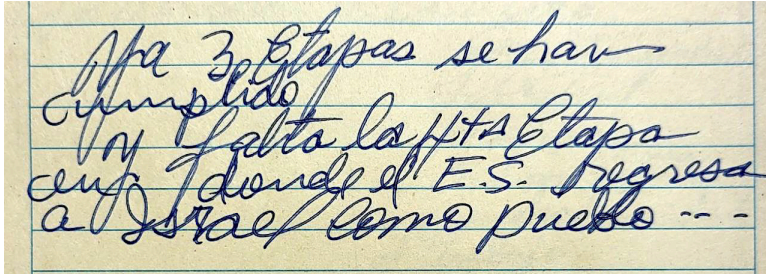 Ya 3 Etapas se han
cumplido
y falta la 4ta Etapa
donde el E.S. regresa
a Israel como pueblo ----